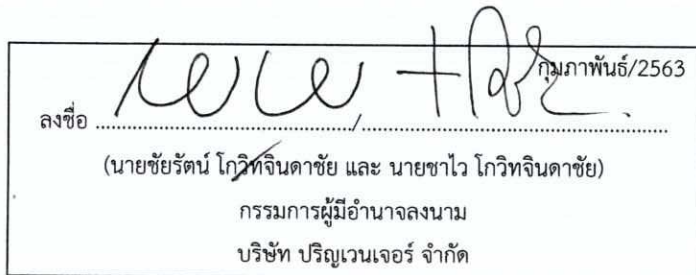 กุมภาพันธ์/2563
ลงชื่อ ............................................./.............................................
(นายชัยรัตน์ โกวิทจินดาชัย และ นายชาไว โกวิทจินดาชัย)
กรรมการผู้มีอำนาจลงนาม
บริษัท ปริญเวนเจอร์ จำกัด